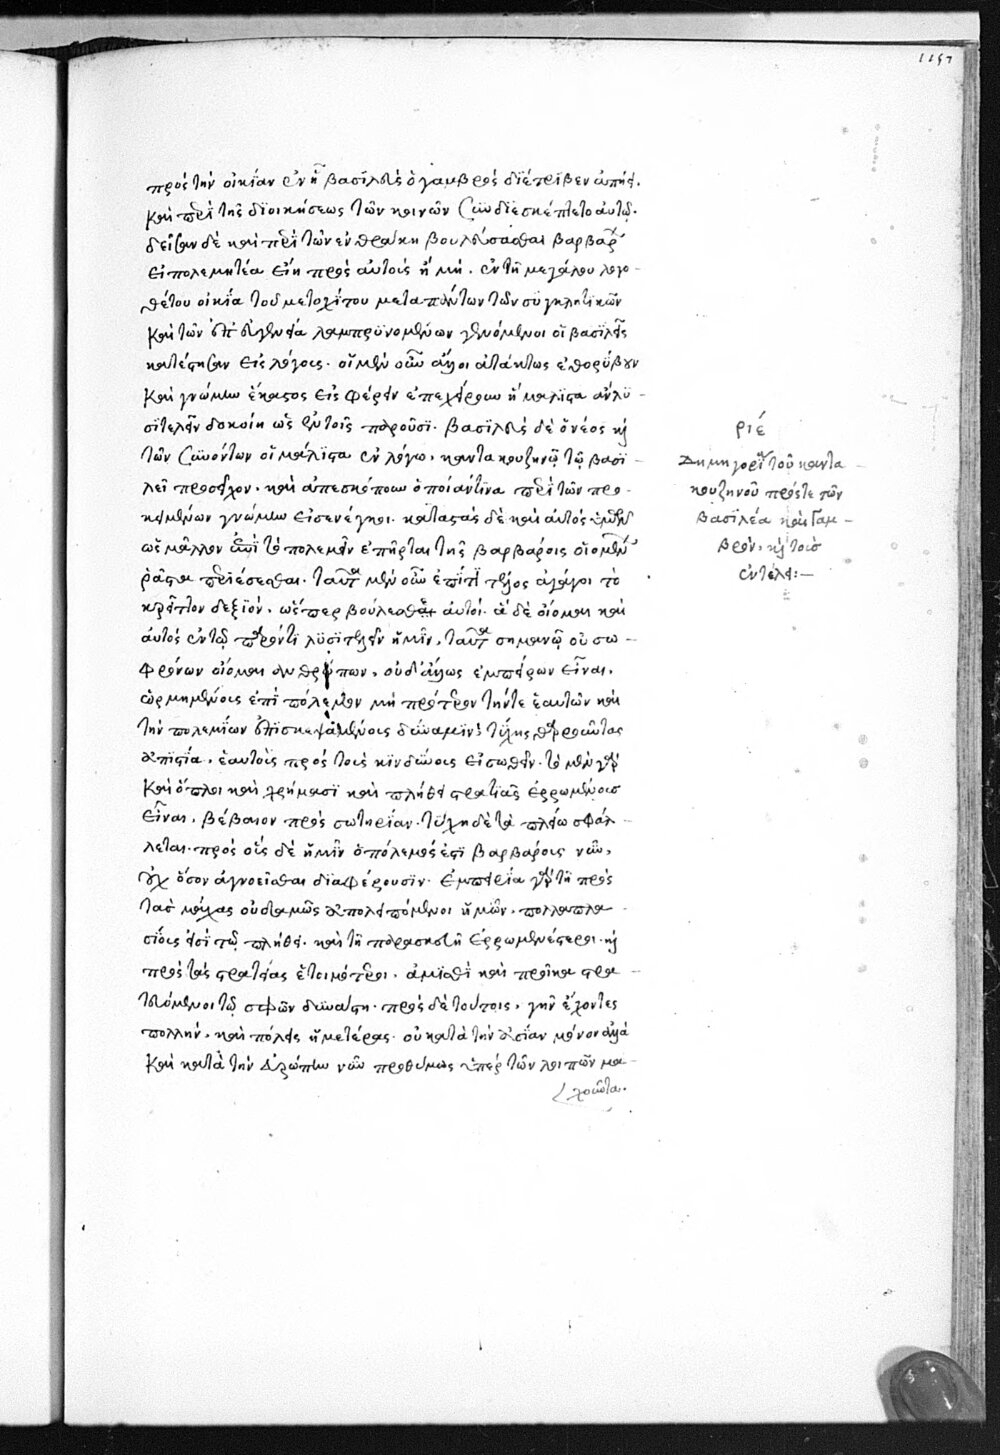 1157
πρὸς τὴν οἰκίαν ἐν ᾗ βασιλεὺς ὁ γαμβρὸς διέτριβεν ἀπῄει.
καὶ περὶ τῆς διοικήσεως τῶν κοινῶν συνδιεσκέπτετο αὐτῷ.
δεῖσαν δὲ καὶ περὶ τῶν ἐν θρᾴκῃ βουλεύσασθαι βαρβάρων
εἰ πολεμητέα εἴη πρὸς αὐτοὺς ἢ μή. ἐν τῇ μεγάλου λογο-
θέτου οἰκίᾳ τοῦ μετοχίτου μετὰ πάντων τῶν συγκλητικῶν
καὶ τῶν ἐπ' εὐγενείᾳ λαμπρυνομένων γενόμενοι οἱ βασιλεῖς
κατέστησαν εἰς λόγους. οἱ μὲν οὖν ἄλλοι ἀτάκτως ἐθορύβουν
καὶ γνώμην ἕκαστος εἰσφέρειν ἐπεχείρουν ἣ μάλιστα ἂν λυ-
σιτελεῖν δοκοίη ὡς ἐν τοῖς παροῦσι. βασιλεὺς δὲ ὁ νέος καὶ
τῶν συνόντων οἱ μάλιστα ἐν λόγῳ, καντακουζηνῷ τῷ βασι-
λεῖ προσεῖχον. καὶ ἀπεσκόπουν ὁποίαν τινα περὶ τῶν προ-
κειμένων γνώμην εἰσενέγκοι. καταστὰς δὲ καὶ αὐτὸς
ὡς μᾶλλον τὸ πολεμεῖν ἐπῆρται τῆς βαρβάροις οἰομένους
ῥᾷστα περιέσεσθαι. ταῦτα μὲν οὖν ἐπί τι τέλος ἀγάγοι τὸ
κρεῖττον δεξιόν, ὥσπερ βούλεσθε αὐτοί. ἃ δὲ οἴομαι καὶ
αὐτὸς ἐν τῷ παρόντι λυσιτελεῖν ἡμῖν, ταῦτα σημανῶ οὐ σω-
φρόνων οἴομαι ἀνθρώπων, οὐδ' ἄλλως ἐμπείρων εἶναι.
ὡρμημένους ἐπὶ πόλεμον μὴ πρότερον τήν τε ἑαυτῶν καὶ
τὴν πολεμίων ἐπισκεψαμένους δύναμιν· τύχης θαρροῦντας
ἀπιστίᾳ, ἑαυτοὺς πρὸς τοὺς κινδύνους εἰσωθεῖν. τὸ μὲν γὰρ
καὶ ὅπλοις καὶ χρήμασι καὶ πλήθει στρατιᾶς ἐρρωμένους
εἶναι, βέβαιον πρὸς σωτηρίαν. τύχη δὲ τὰ πλείω σφάλ-
λεται. πρὸς οὓς δὲ ἡμῖν ὁ πόλεμός ἐστι βαρβάρους νῦν,
οὐχ ὅσον ἀγνοεῖσθαι διαφέρουσιν. ἐμπειρίᾳ γὰρ τῇ πρὸς
τὰς μάχας οὐδαμῶς ἀπολειπόμενοι ἡμῶν, πολλαπλα-
σίοις εἰσὶ τῷ πλήθει. καὶ τῇ παρασκευῇ ἐρρωμενέστεροι. καὶ
πρὸς τὰς στρατείας ἑτοιμότεροι. ἀμισθὶ καὶ προῖκα στρα-
τευόμενοι τῷ σφῶν δυνάστῃ. πρὸς δὲ τούτοις, γῆν ἔχοντες
πολλὴν, καὶ πόλεις ἡμετέρας. οὐ κατὰ τὴν ἀσίαν μόνον ἀλλὰ
καὶ κατὰ τὴν εὐρώπην νῦν προθύμως ὑπὲρ τῶν λοιπῶν μα-
χοῦνται.
ριέ
Δημηγορία τοῦ καντα-
κουζηνοῦ πρός τε τὸν
βασιλέα καὶ γαμ-
βρὸν, καὶ τοὺς
ἐν τέλει:—